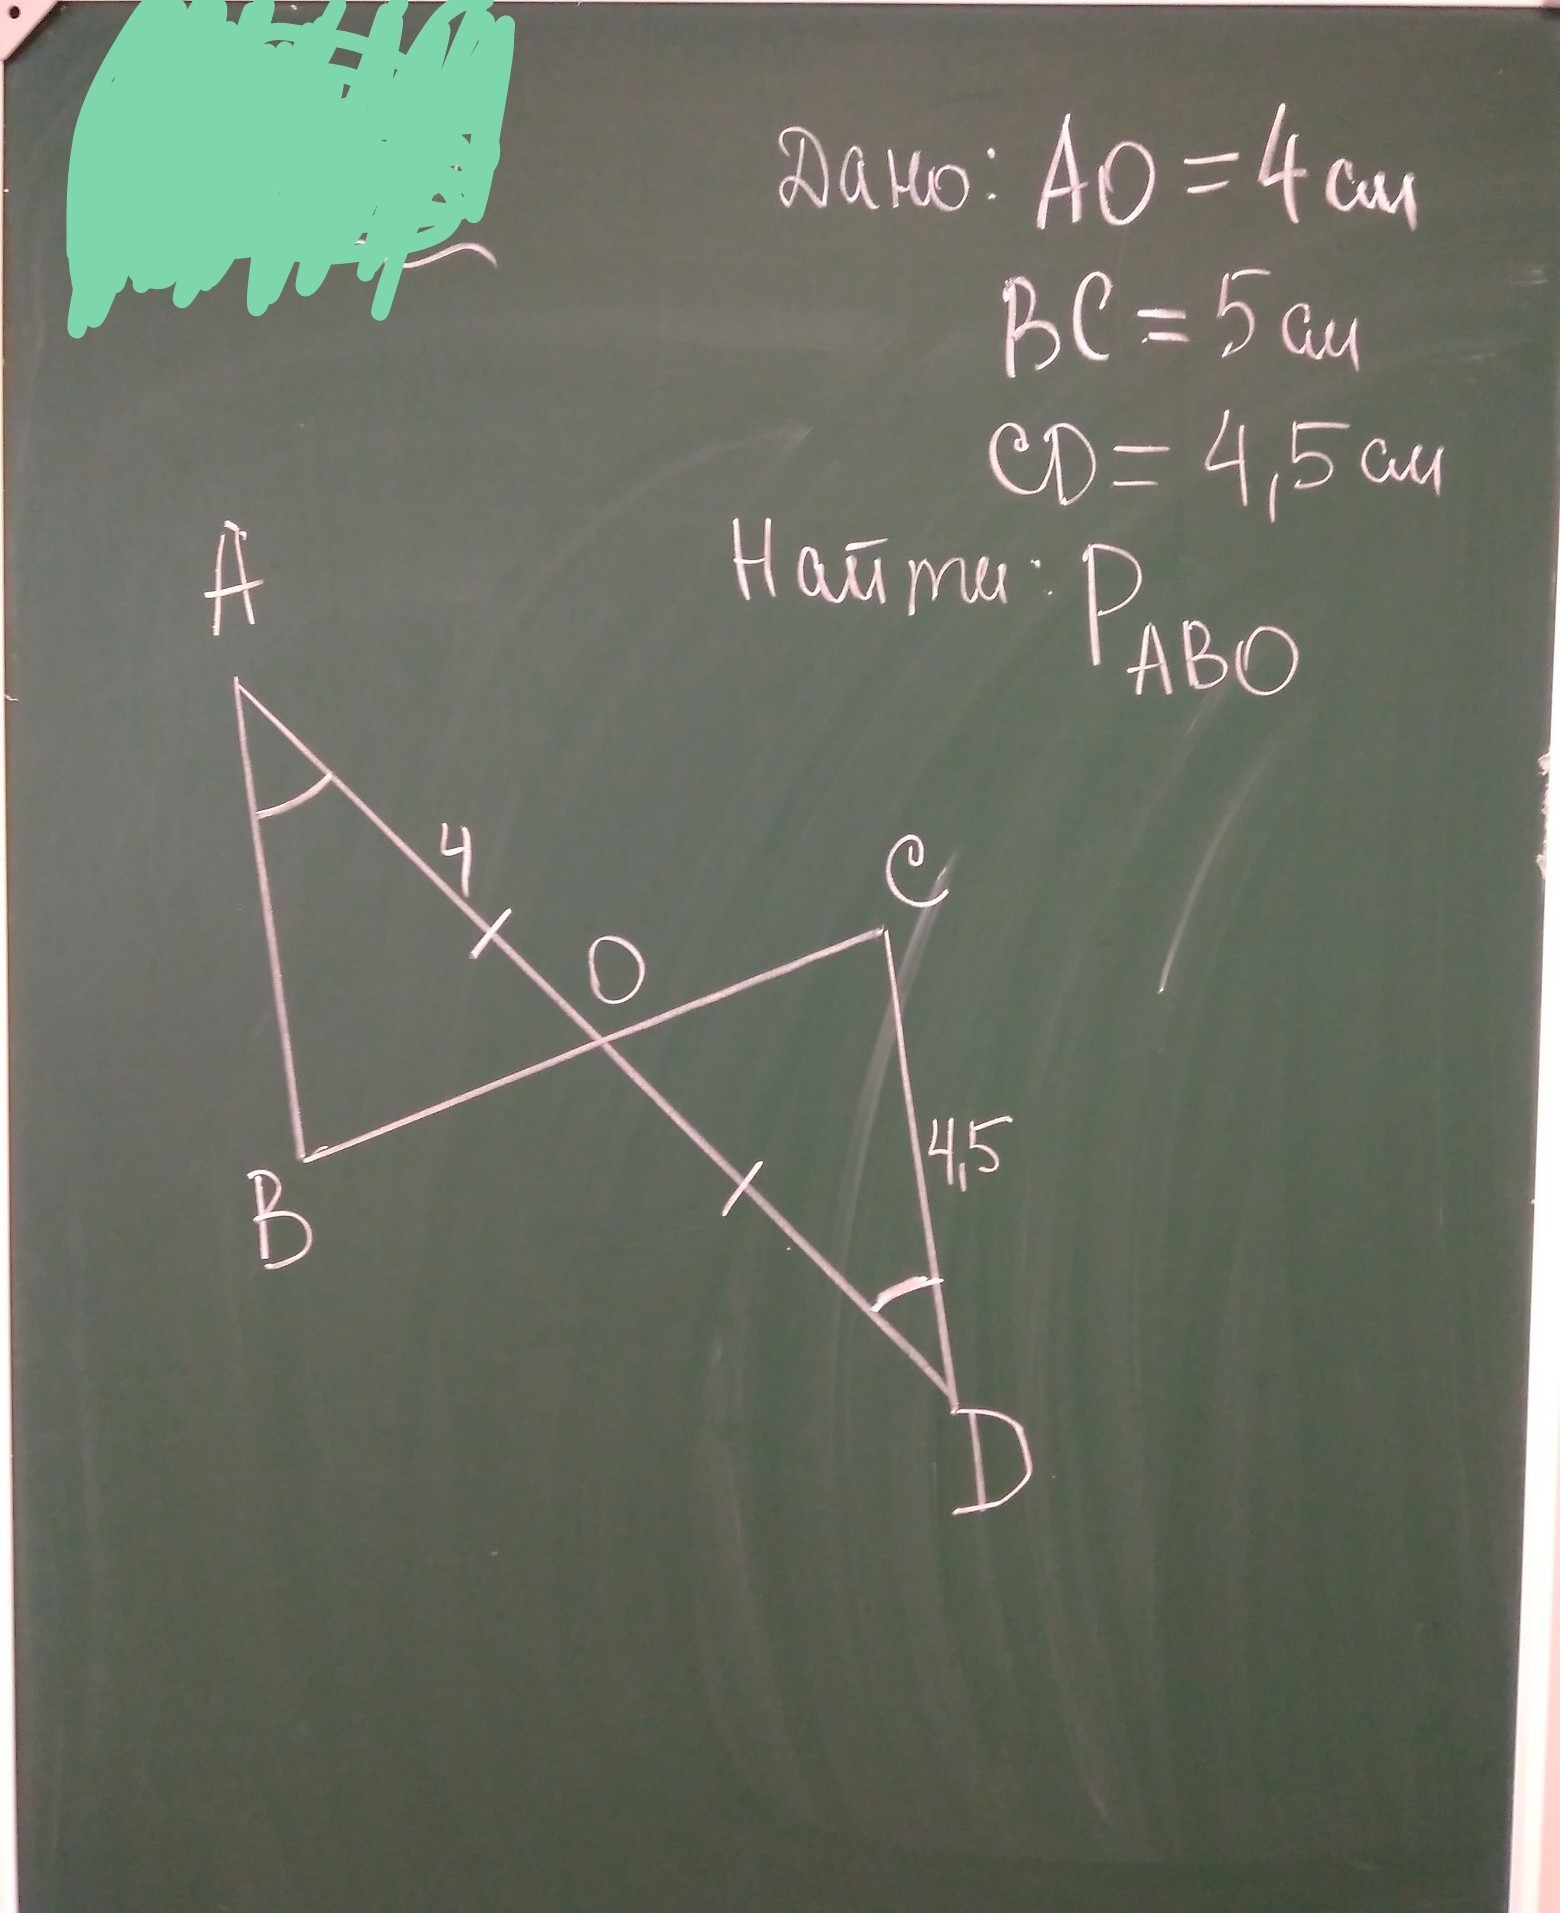 Дано: AO = 4 см
BC = 5 см
CD = 4,5 см
Найти: P ABO
A
4
O
C
4,5
B
D